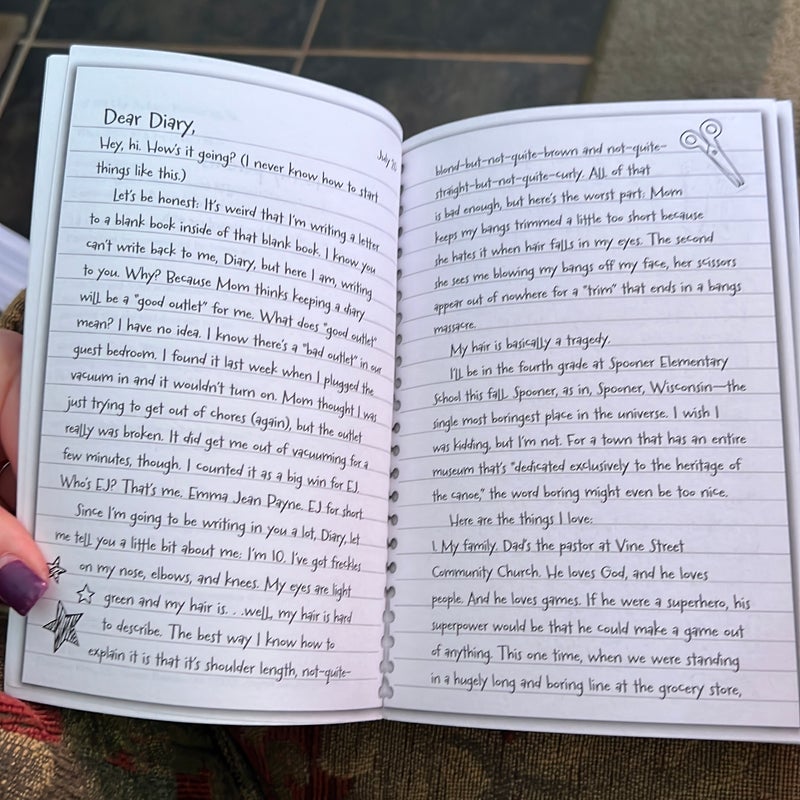 July
Dear Diary,
Hey, hi. How's it going? (I never know how to start
things like this.)
Let's be honest: It's weird that I'm writing a letter
to a blank book inside of that blank book. I know you
can't write back to me, Diary, but here I am, writing
to you. Why? Because Mom thinks keeping a diary
will be a "good outlet" for me. What does "good outlet"
mean? I have no idea. I know there's a "bad outlet" in our
guest bedroom. I found it last week when I plugged the
vacuum in and it wouldn't turn on. Mom thought I was
just trying to get out of chores (again), but the outlet
really was broken. It did get me out of vacuuming for a
few minutes, though. I counted it as a big win for EJ.
Who's EJ? That's me. Emma Jean Payne. EJ for short.
Since I'm going to be writing in you a lot, Diary, let
me tell you a little bit about me: I'm 10. I've got freckles
on my nose, elbows, and knees. My eyes are light
green and my hair is. . .well, my hair is hard
to describe. The best way I know how to
explain it is that it's shoulder length, not-quite-
blond-but-not-quite-brown and not-quite-
straight-but-not-quite-curly. All of that
is bad enough, but here's the worst part: Mom
keeps my bangs trimmed a little too short because
she hates it when hair falls in my eyes. The second
she sees me blowing my bangs off my face, her scissors
appear out of nowhere for a "trim" that ends in a bangs
massacre.
My hair is basically a tragedy.
I'll be in the fourth grade at Spooner Elementary
School this fall. Spooner, as in, Spooner, Wisconsin—the
single most boringest place in the universe. I wish I
was kidding, but I'm not. For a town that has an entire
museum that's "dedicated exclusively to the heritage of
the canoe," the word boring might even be too nice.
Here are the things I love:
1. My family. Dad's the pastor at Vine Street
Community Church. He loves God, and he loves
people. And he loves games. If he were a superhero, his
superpower would be that he could make a game out
of anything. This one time, when we were standing
in a hugely long and boring line at the grocery store,